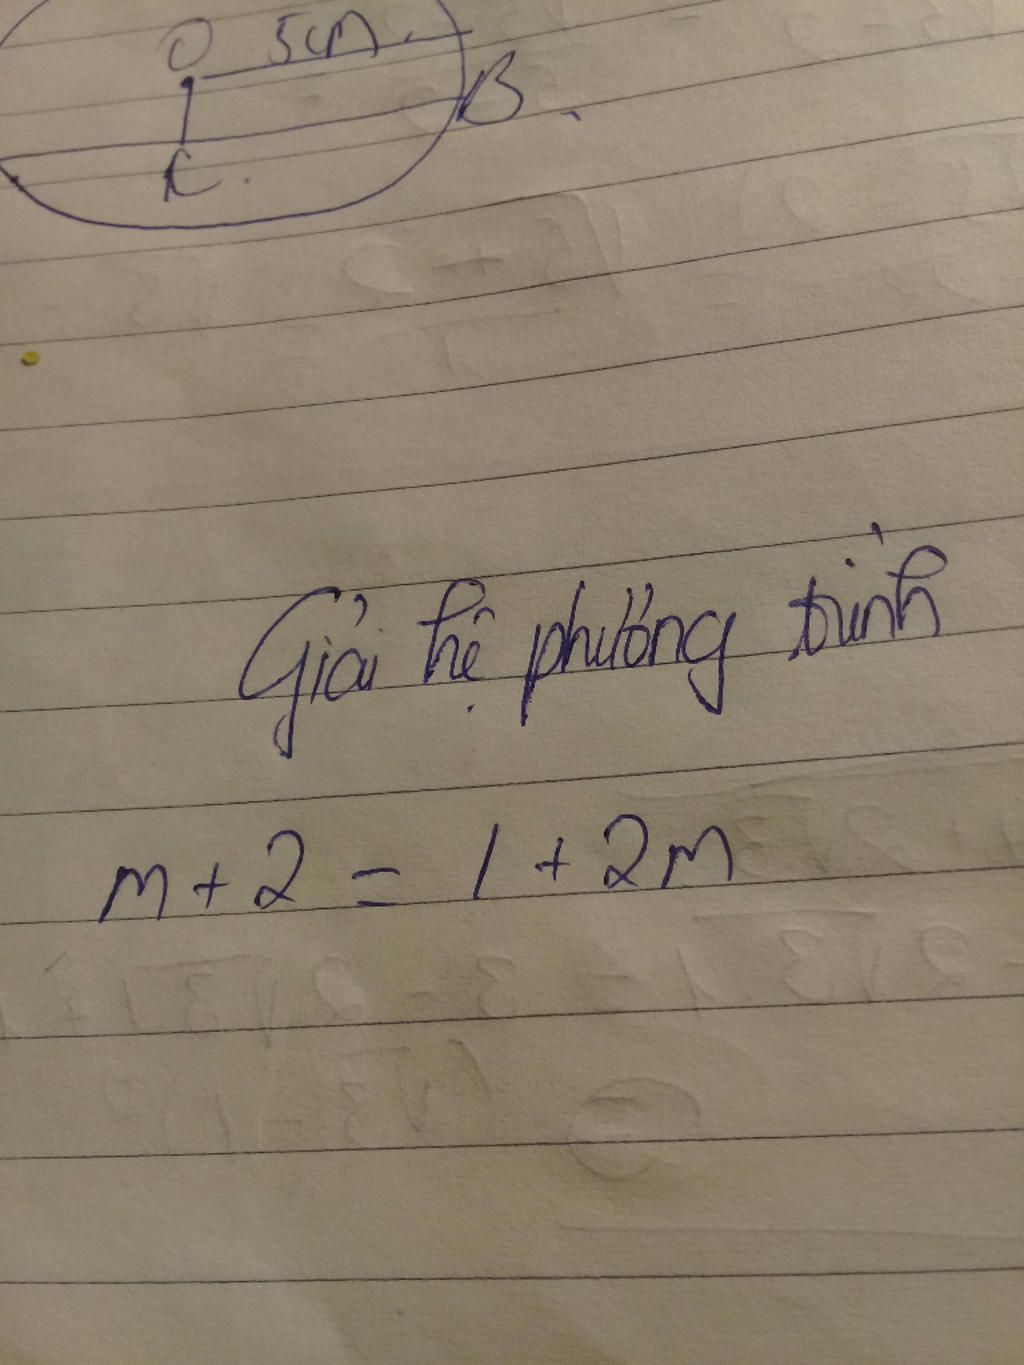 O 5cm.
B.
K.
Giải hệ phương trình
m + 2 = 1 + 2m